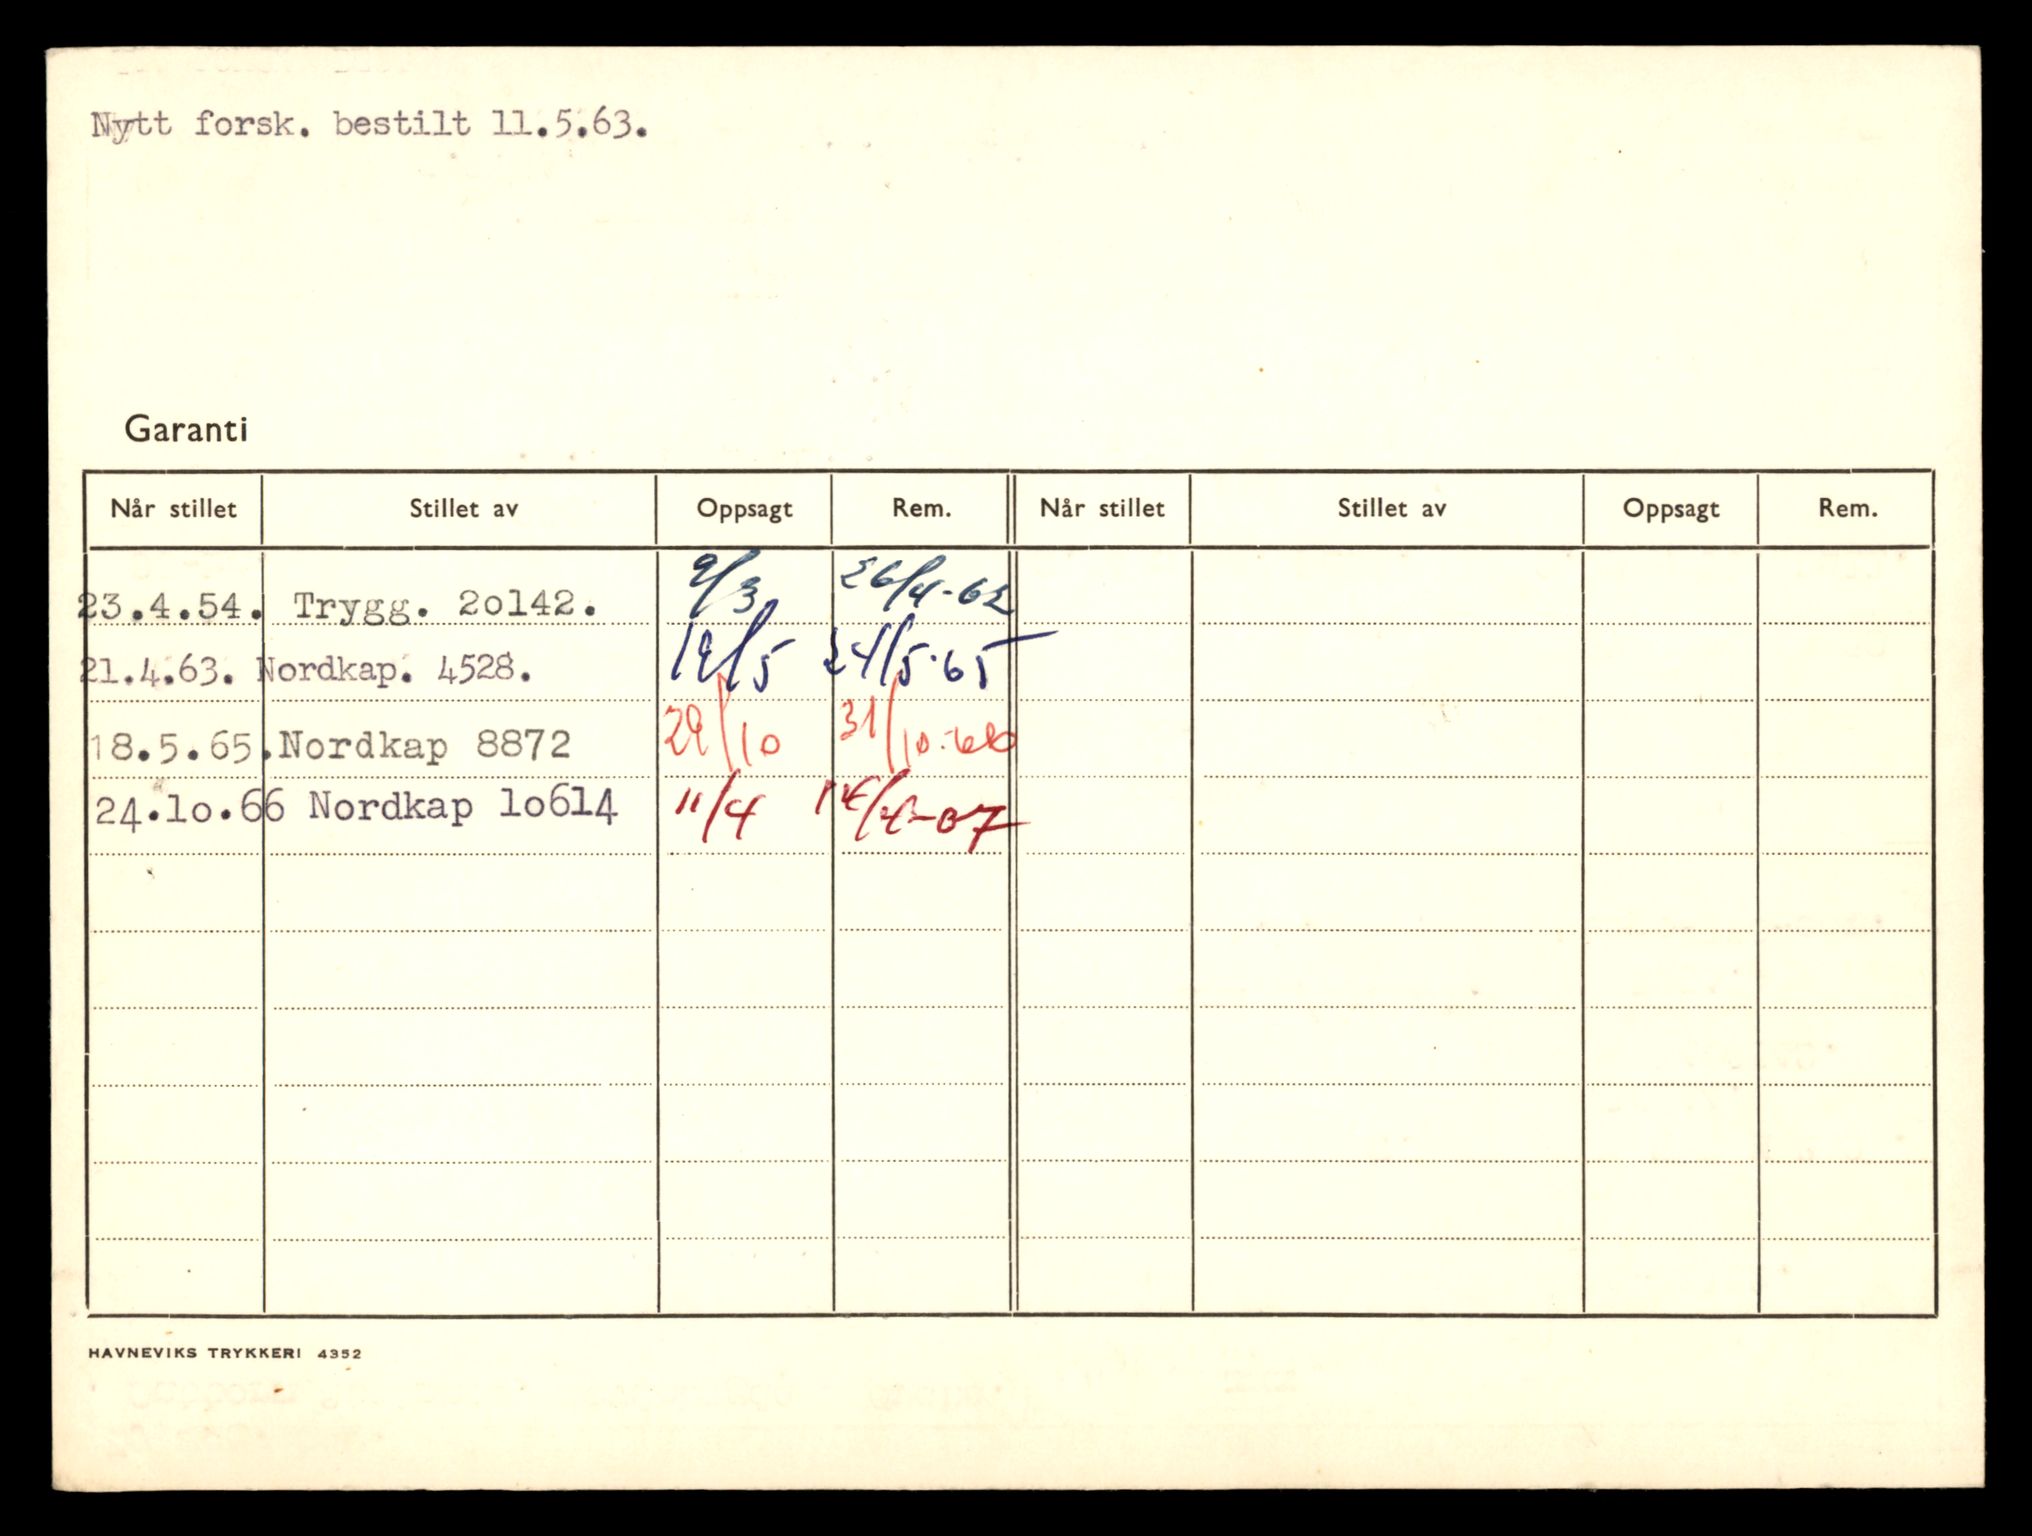 Nytt forsk. bestilt 11.5.63.
Garanti
Når stillet Stillet av Oppsagt Rem. Når stillet Stillet av Oppsagt Rem.
23.4.54. Trygg. 2o142. 9/3 26/4-62
21.4.63. Nordkap. 4528. 19/5 24/5-65
18.5.65. Nordkap 8872 29/10 31/10-66
24.1o.66 Nordkap 1o614 11/4 14/4-67
HAVNEVIKS TRYKKERI 4352